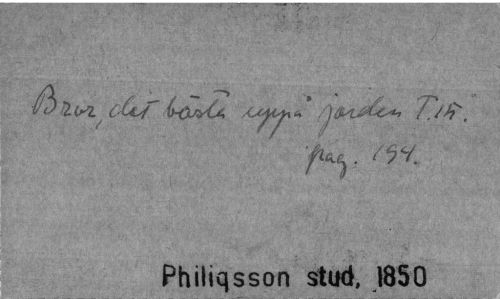 Bror, det bästa uppå jorden T.15.
pag. 194.
Philiqsson stud, 1850